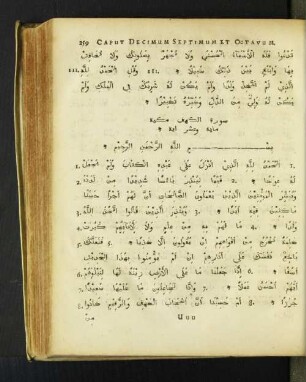 259 CAPUT DECIMUM SEPTIMUM ET OCTAVUM.
تدعوا فله الأسماء الحسني ولا تجهر بصلوتك ولا تخافت
بها وابتغ بين ذلك سبيلا * 111. وقل الحمد لله 111.
الذي لم يتخذ ولدا ولم يكن له شريك في الملك ولم
يكن له ولي من الذل وكبره تكبيرا *
سورة الكهف مكية
مائة وعشر اية
بسم الله الرحمن الرحيم *
1. الحمد لله الذي أنزل علي عبده الكتاب ولم يجعل 1.
له عوجا * قيما لينذر بأسا شديدا من لدنه 2.
ويبشر المؤمنين الذين يعملون الصالحات أن لهم أجرا حسنا
ماكثين فيه أبدا * وينذر الذين قالوا اتخذ الله 3.
ولدا * ما لهم به من علم ولا لآبائهم كبرت 4.
كلمة تخرج من أفواههم إن يقولون إلا كذبا * فلعلك 5.
باخع نفسك علي آثارهم إن لم يؤمنوا بهذا الحديث
أسفا * إنا جعلنا ما علي الأرض زينة لها لنبلوهم 6.
أيهم أحسن عملا * وإنا لجاعلون ما عليها صعيدا 7.
جرزا * 8. أم حسبت أن أصحاب الكهف والرقيم كانوا 8.
Uuu
من